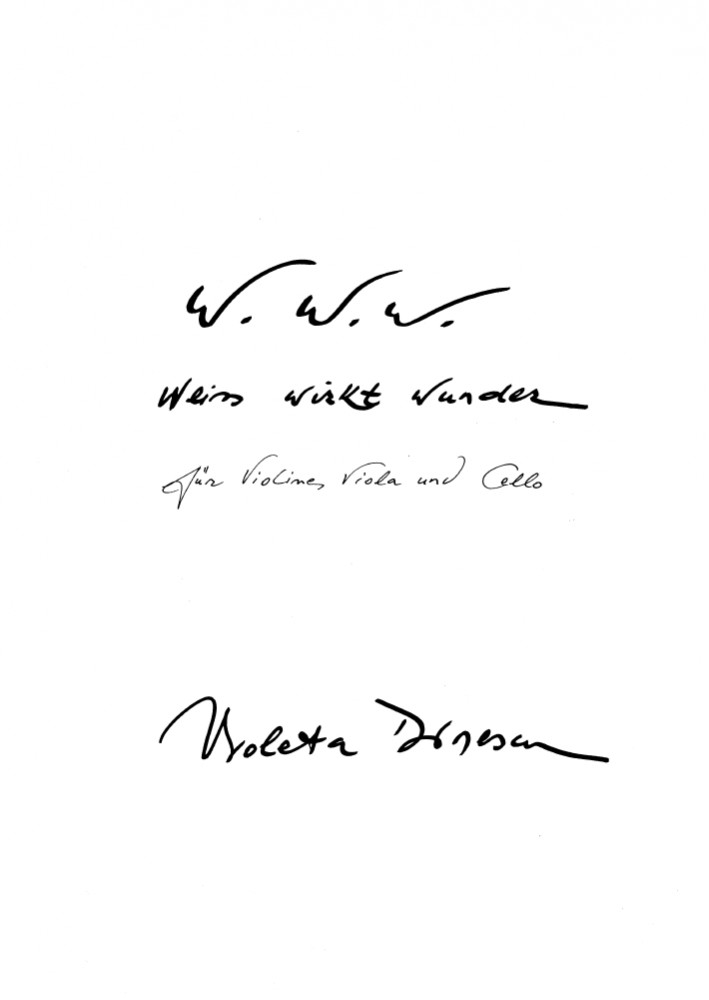 W. W. W.
Weiss wirkt Wunder
für Violine, Viola und Cello
Violeta Dinescu